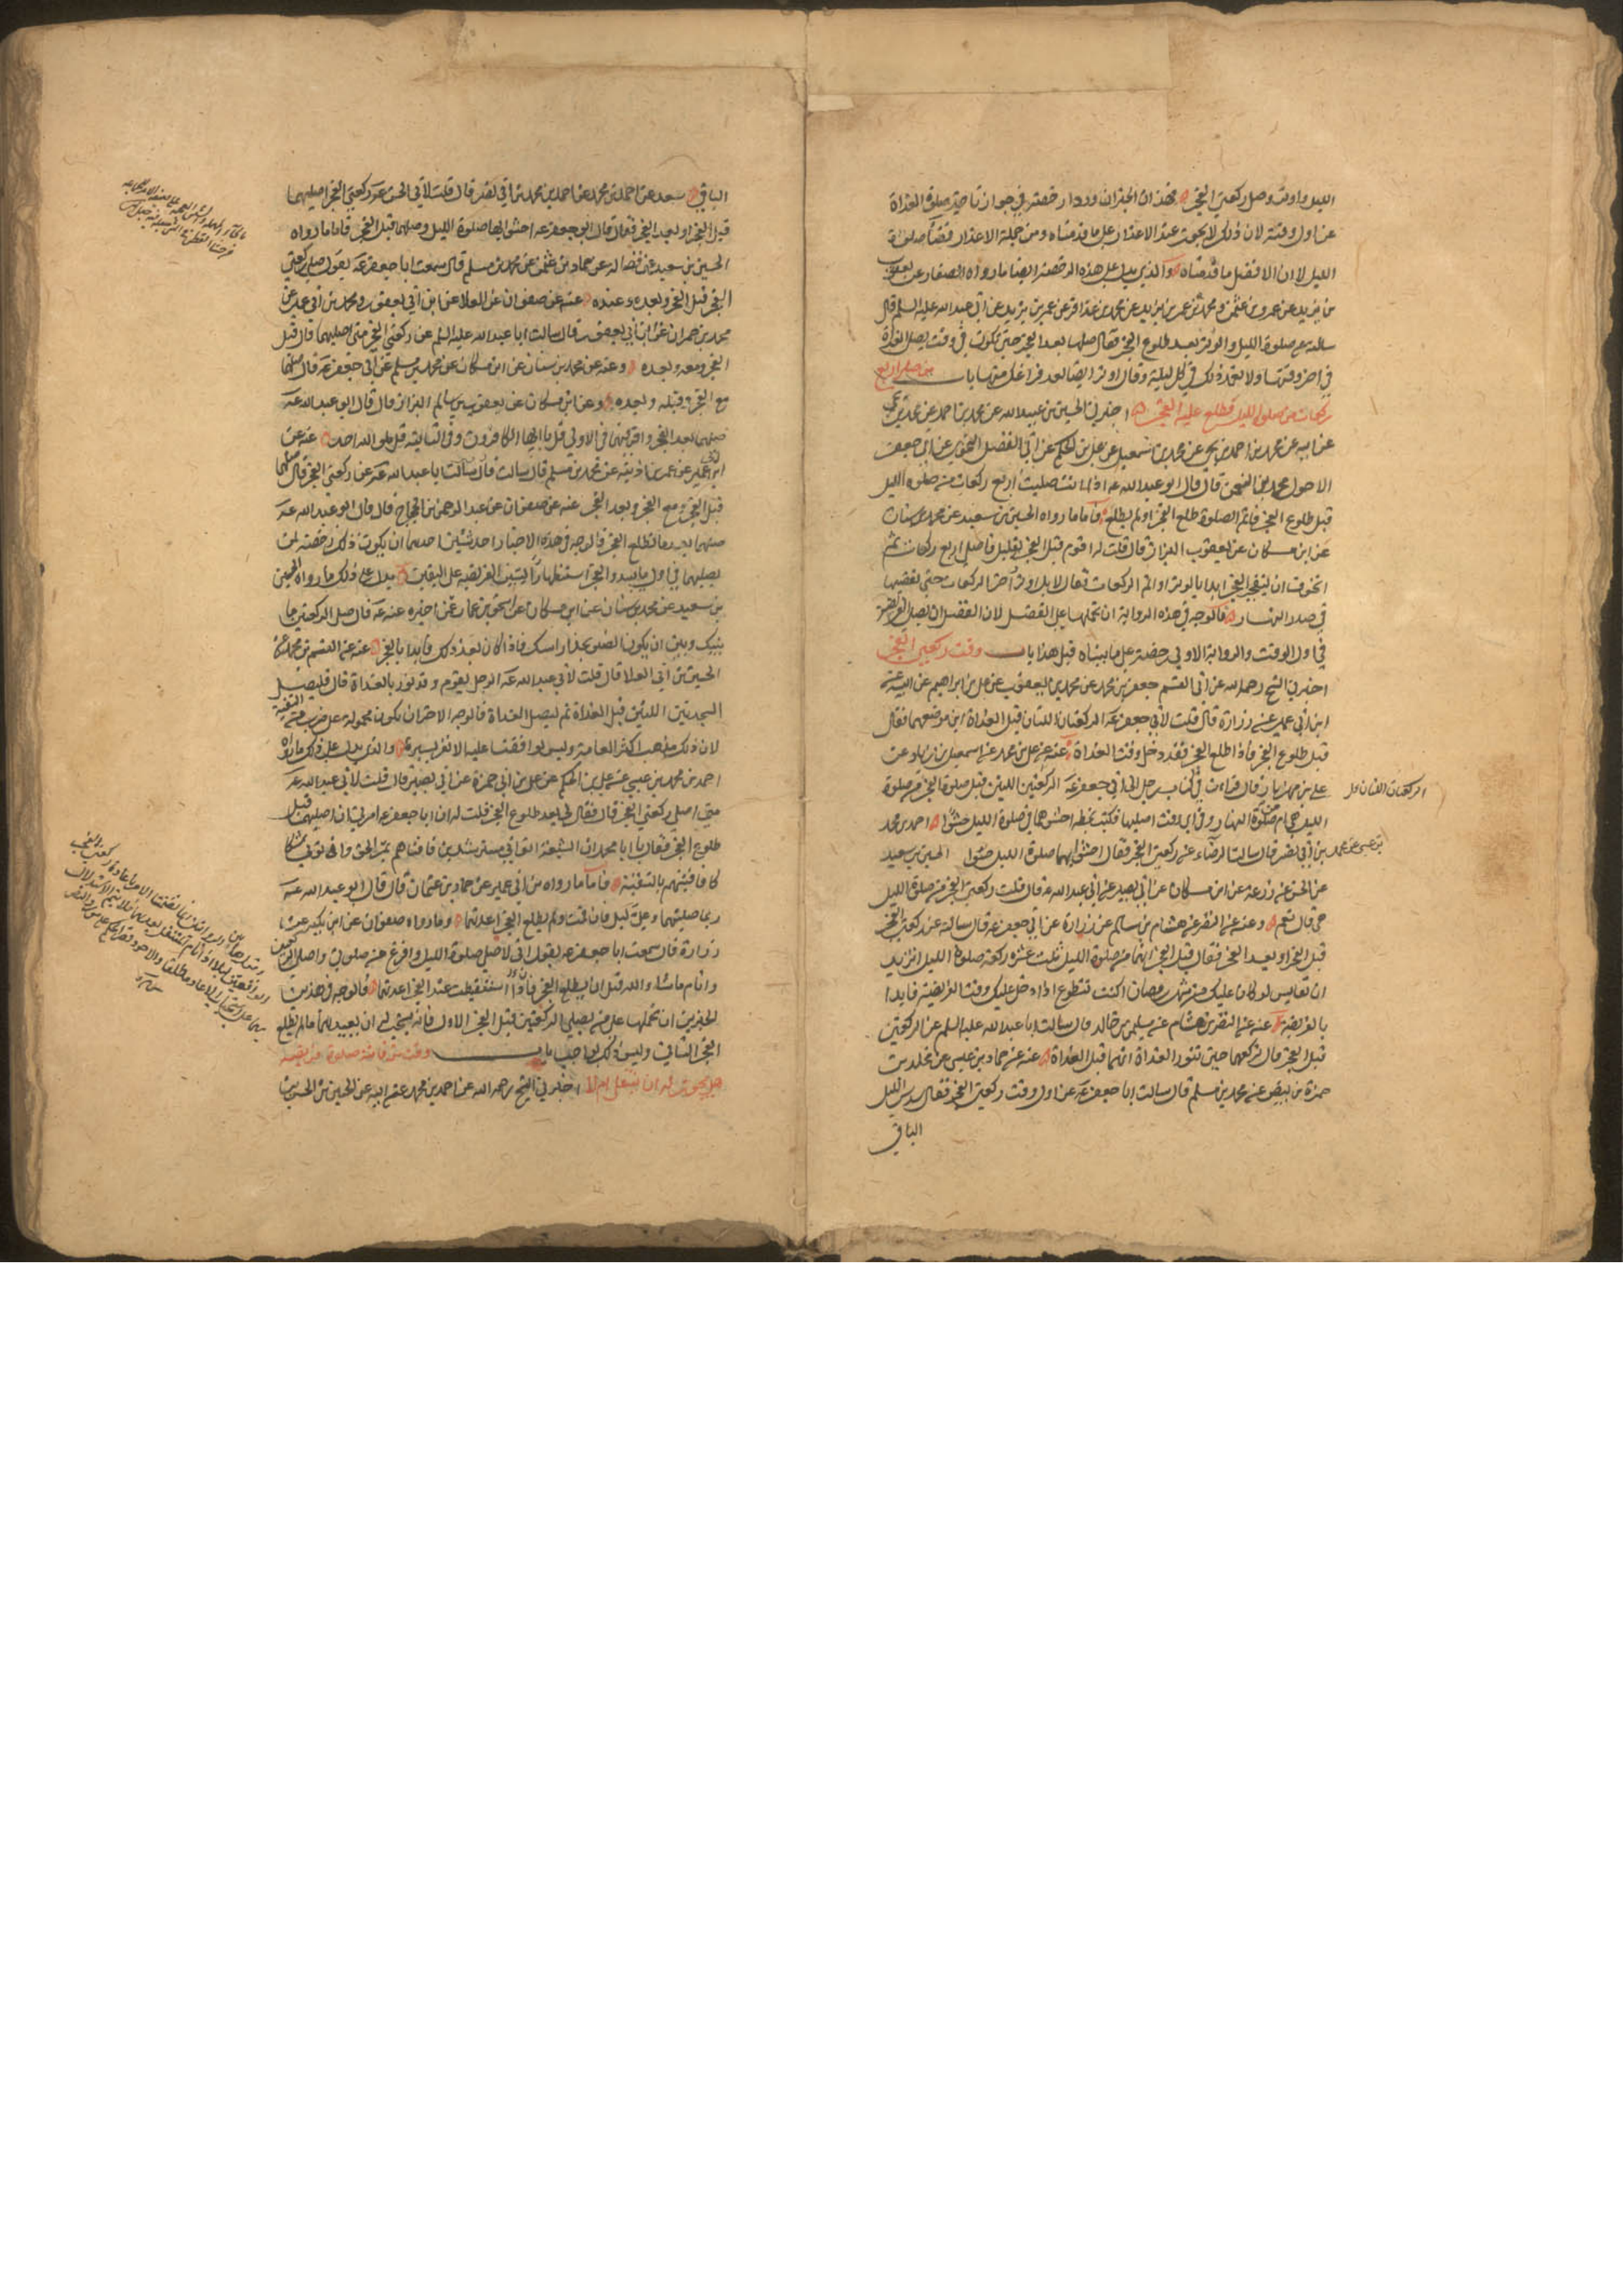 الليل واوتر وصل ركعتي الفجر فهذان الخبران وردا رخصة في جواز تاخير صلوة الغداة
عن اول وقته لان ذلك لا يجوز عند الاعذار على ما قدمناه ومن جملة الاعذار قضاء صلوة
الليل الا ان الافضل ما قدمناه والذي يدل على هذه الرخصة ايضا ما رواه الصفار عن يعقوب
بن يزيد عن عمرو بن عثمن و محمد بن عمر بن يزيد عن محمد بن عذافر عن عمر بن يزيد عن ابي عبد الله عليه السلم قال
سالته عن صلوة الليل والوتر بعد طلوع الفجر فقال صلها بعد الفجر حتى تكون في وقت يصلى الغداة
في اخر وقتها ولا تعمد ذلك في كل ليلة وقال اوتر ايضا بعد فراغك منها باب من صلى اربع
ركعات من صلوة الليل فطلع عليه الفجر اخبرني الحسين بن عبيد الله عن محمد بن احمد عن محمد بن يحيى
عن ابيه عن محمد بن احمد بن يحيى عن محمد بن اسمعيل عن علي بن الحكم عن ابي الفضل النحوي عن ابي جعفر
الاحول محمد بن النعمن قال قال ابو عبد الله عه اذا انت صليت اربع ركعات من صلوة الليل
قبل طلوع الفجر فاتم الصلوة طلع الفجر او لم يطلع فاما ما رواه الحسين بن سعيد عن محمد بن سنان
عن ابن مسكان عن يعقوب البزاز قال قلت له اقوم قبل الفجر بقليل فاصلي اربع ركعات ثم
اتخوف ان ينفجر الفجر ابدا بالوتر او اتم الركعات فقال لا بل اوتر واخر الركعات حتى تقضيها
في صدر النهار فالوجه في هذه الرواية ان نحملها على الفضل لان الفضل ان يصلي الفريضة
في اول الوقت والرواية الاولى رخصة على ما بيناه قبل هذا باب وقت ركعتي الفجر
اخبرني الشيخ رحمه الله عن ابي القسم جعفر بن محمد عن محمد بن يعقوب عن علي بن ابراهيم عن ابيه عن
ابن ابي عمير عن زرارة قال قلت لابي جعفر عه الركعتان اللتان قبل الغداة اين موضعهما فقال
قبل طلوع الفجر فاذا طلع الفجر فقد دخل وقت الغداة عنه عن علي بن محمد عن اسمعيل بن زياد عن
علي بن مهزيار قال قرات في كتاب رجل الى ابي جعفر عه الركعتين اللتين قبل صلوة الفجر من صلوة
الركعتان اللتان
الليل هي ام من صلوة النهار وفي اي وقت اصليها فكتب بخطه احشوهما في صلوة الليل حشوا احمد بن محمد
بن عيسى عن احمد بن محمد بن ابي نصر قال سالت الرضاء عن ركعتي الفجر فقال احشوا بهما صلوة الليل حشوا الحسين بن سعيد
عن الحسن عن زرعه عن ابن مسكان عن ابي بصير عن ابي عبد الله عه قال قلت ركعتي الفجر من صلوة الليل
هي قال نعم وعنه عن النضر عن هشام بن سالم عن زرارة عن ابي جعفر عه قال سالته عن ركعتي الفجر
قبل الفجر او بعد الفجر فقال قبل الفجر انهما من صلوة الليل ثلث عشره ركعة صلوة الليل اتريد
ان تقايس لو كان عليك من شهر رمضان اكنت تتطوع اذا دخل عليك وقت الفريضة فابدا
بالفريضة عنه عن النضر بن هشام عن سليمن بن خالد قال سالت ابا عبد الله عليه السلم عن الركعتين
قبل الفجر قال تركعهما حين تنور الغداة انهما قبل الغداة عنه عن حماد بن عيسى عن مخلد بن
حمزة بن بيض عن محمد بن مسلم قال سالت ابا جعفر عه عن اول وقت ركعتي الفجر فقال سدس الليل
الباقي
الباقي سعد عن احمد بن محمد عن احمد بن محمد بن ابي نصر قال قلت لابي الحسن عه ركعتي الفجر اصليهما
قبل الفجر او بعد الفجر فقال قال ابو جعفر عه احشوا بها صلوة الليل وصلهما قبل الفجر فاما ما رواه
الحسين بن سعيد عن فضاله عن حماد بن عثمن عن محمد بن مسلم قال سمعت ابا جعفر عه يقول صل ركعتي
الفجر قبل الفجر وبعده وعنده عنه عن صفوان عن العلا عن ابن ابي يعفور ومحمد بن ابي عمير عن
محمد بن حمران عن ابن ابي يعفور قال سالت ابا عبد الله عليه السلم عن ركعتي الفجر متى اصليهما قال قبل
الفجر ومعه وبعده وعنه عن محمد بن سنان عن ابن مسكان عن محمد بن مسلم عن ابي جعفر عه قال صلهما
مع الفجر وقبله وبعده وعن ابن مسكان عن يعقوب بن سالم البزاز قال قال ابو عبد الله عه
صلهما بعد الفجر واقرا فيهما في الاولى قل يا ايها الكافرون وفي الثانية قل هو الله احد عنه عن
ابن ابي عمير عن عمر بن اذينه عن محمد بن مسلم قال سالت ابا عبد الله عه عن ركعتي الفجر قال صلهما
قبل الفجر و مع الفجر و بعد الفجر عنه عن صفوان عن عبد الرحمن بن الحجاج قال قال ابو عبد الله عه
صلهما بعد ما تطلع الفجر فالوجه في هذه الاخبار احد شيئين احدهما ان يكون ذلك رخصة لمن
يصليهما في اول ما يبدو الفجر استظهارا ليتبين الفريضه على اليقين يدل على ذلك ما رواه الحسين
بن سعيد عن محمد بن سنان عن ابن مسكان عن اسحق بن عمار عمن اخبره عنه عه قال صل الركعتين ما
بينك وبين ان يكون الضوء بحذا راسك فاذا كان بعد ذلك فابدا بالفجر عنه عن القسم بن محمد عن
الحسين بن ابي العلا قال قلت لابي عبد الله عه الرجل يقوم وقد نور بالغداة قال فليصل
السجدتين اللتين قبل الغداة ثم ليصل الغداة فالوجه الاخر ان يكون محمولة على ضرب من التقية
لان ذلك مذهب اكثر العامة وليس يوافقنا عليه الا نفر يسير والذي يدل على ذلك ما رواه
احمد بن محمد بن عيسى عن علي بن الحكم عن علي بن ابي حمزة عن ابي بصير قال قلت لابي عبد الله عه
متى اصلي ركعتي الفجر قال فقال لي بعد طلوع الفجر قلت له ان ابا جعفر عه امرني ان اصليهما قبل
طلوع الفجر فقال يا ابا محمد ان الشيعة اتوا ابي مسترشدين فافتاهم بمر الحق واتوني شكا
كا فافتيتهم بالتقية فاما ما رواه ابن ابي عمير عن حماد بن عثمان قال قال لي ابو عبد الله عه
ربما صليتهما وعلي ليل فان قمت ولم يطلع الفجر اعدتهما وما رواه صفوان عن ابن بكير عن
زرارة قال سمعت ابا جعفر عه يقول اني لاصلي صلوة الليل وافرغ من صلوتي واصلي الركعتين
وانام ما شاء الله قبل ان يطلع الفجر فاذا استيقظت عند الفجر اعدتهما فالوجه في هذين
الخبرين ان نحملها على من يصلي الركعتين قبل الفجر الاول فانه يستحب له ان يعيدهما ما لم يطلع
الفجر الثاني وليس ذلك بواجب باب وقت من فاتته صلوة فريضة
هل يجوز له ان يتنفل ام لا اخبرني الشيخ رحمه الله عن احمد بن محمد عن ابيه عن الحسين بن الحسن بن